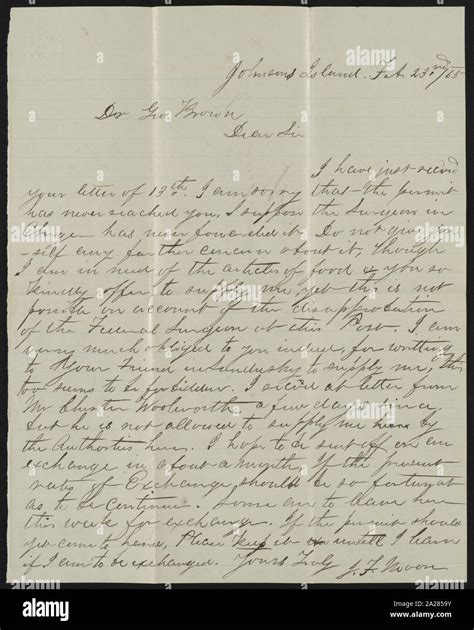 Johnsons Island. Feb 23rd/65
Dr Geo Brown
Dear Sir
I have just recvd
your letter of 13th. I am sorry that the permit
has never reached you, I suppose the Surgeon in
charge has never forwarded it. Do not give your
self any further concern about it, though
I am in need of the articles of food & you so
kindly offer to supply me, yet this is not
possible on account of the disapprobation
of the Federal Surgeon at this Post. I am
very much obliged to you indeed, for writing
to your friend in Sandusky to supply me, this
too seems to be forbidden. I recvd a letter from
Mr Chester Woolworth a few days since,
but he is not allowed to supply me by
the Authorities here. I hope to be sent off on an
exchange in about a month if the present
rates of Exchange should be so fortunate
as to be continued. Some are to leave here
this week for exchange. If the permit should
yet come to hand, Please keep it until I learn
if I am to be exchanged. Yours Truly J. F. Moon
alamy
Image ID: 2A2859Y
www.alamy.com